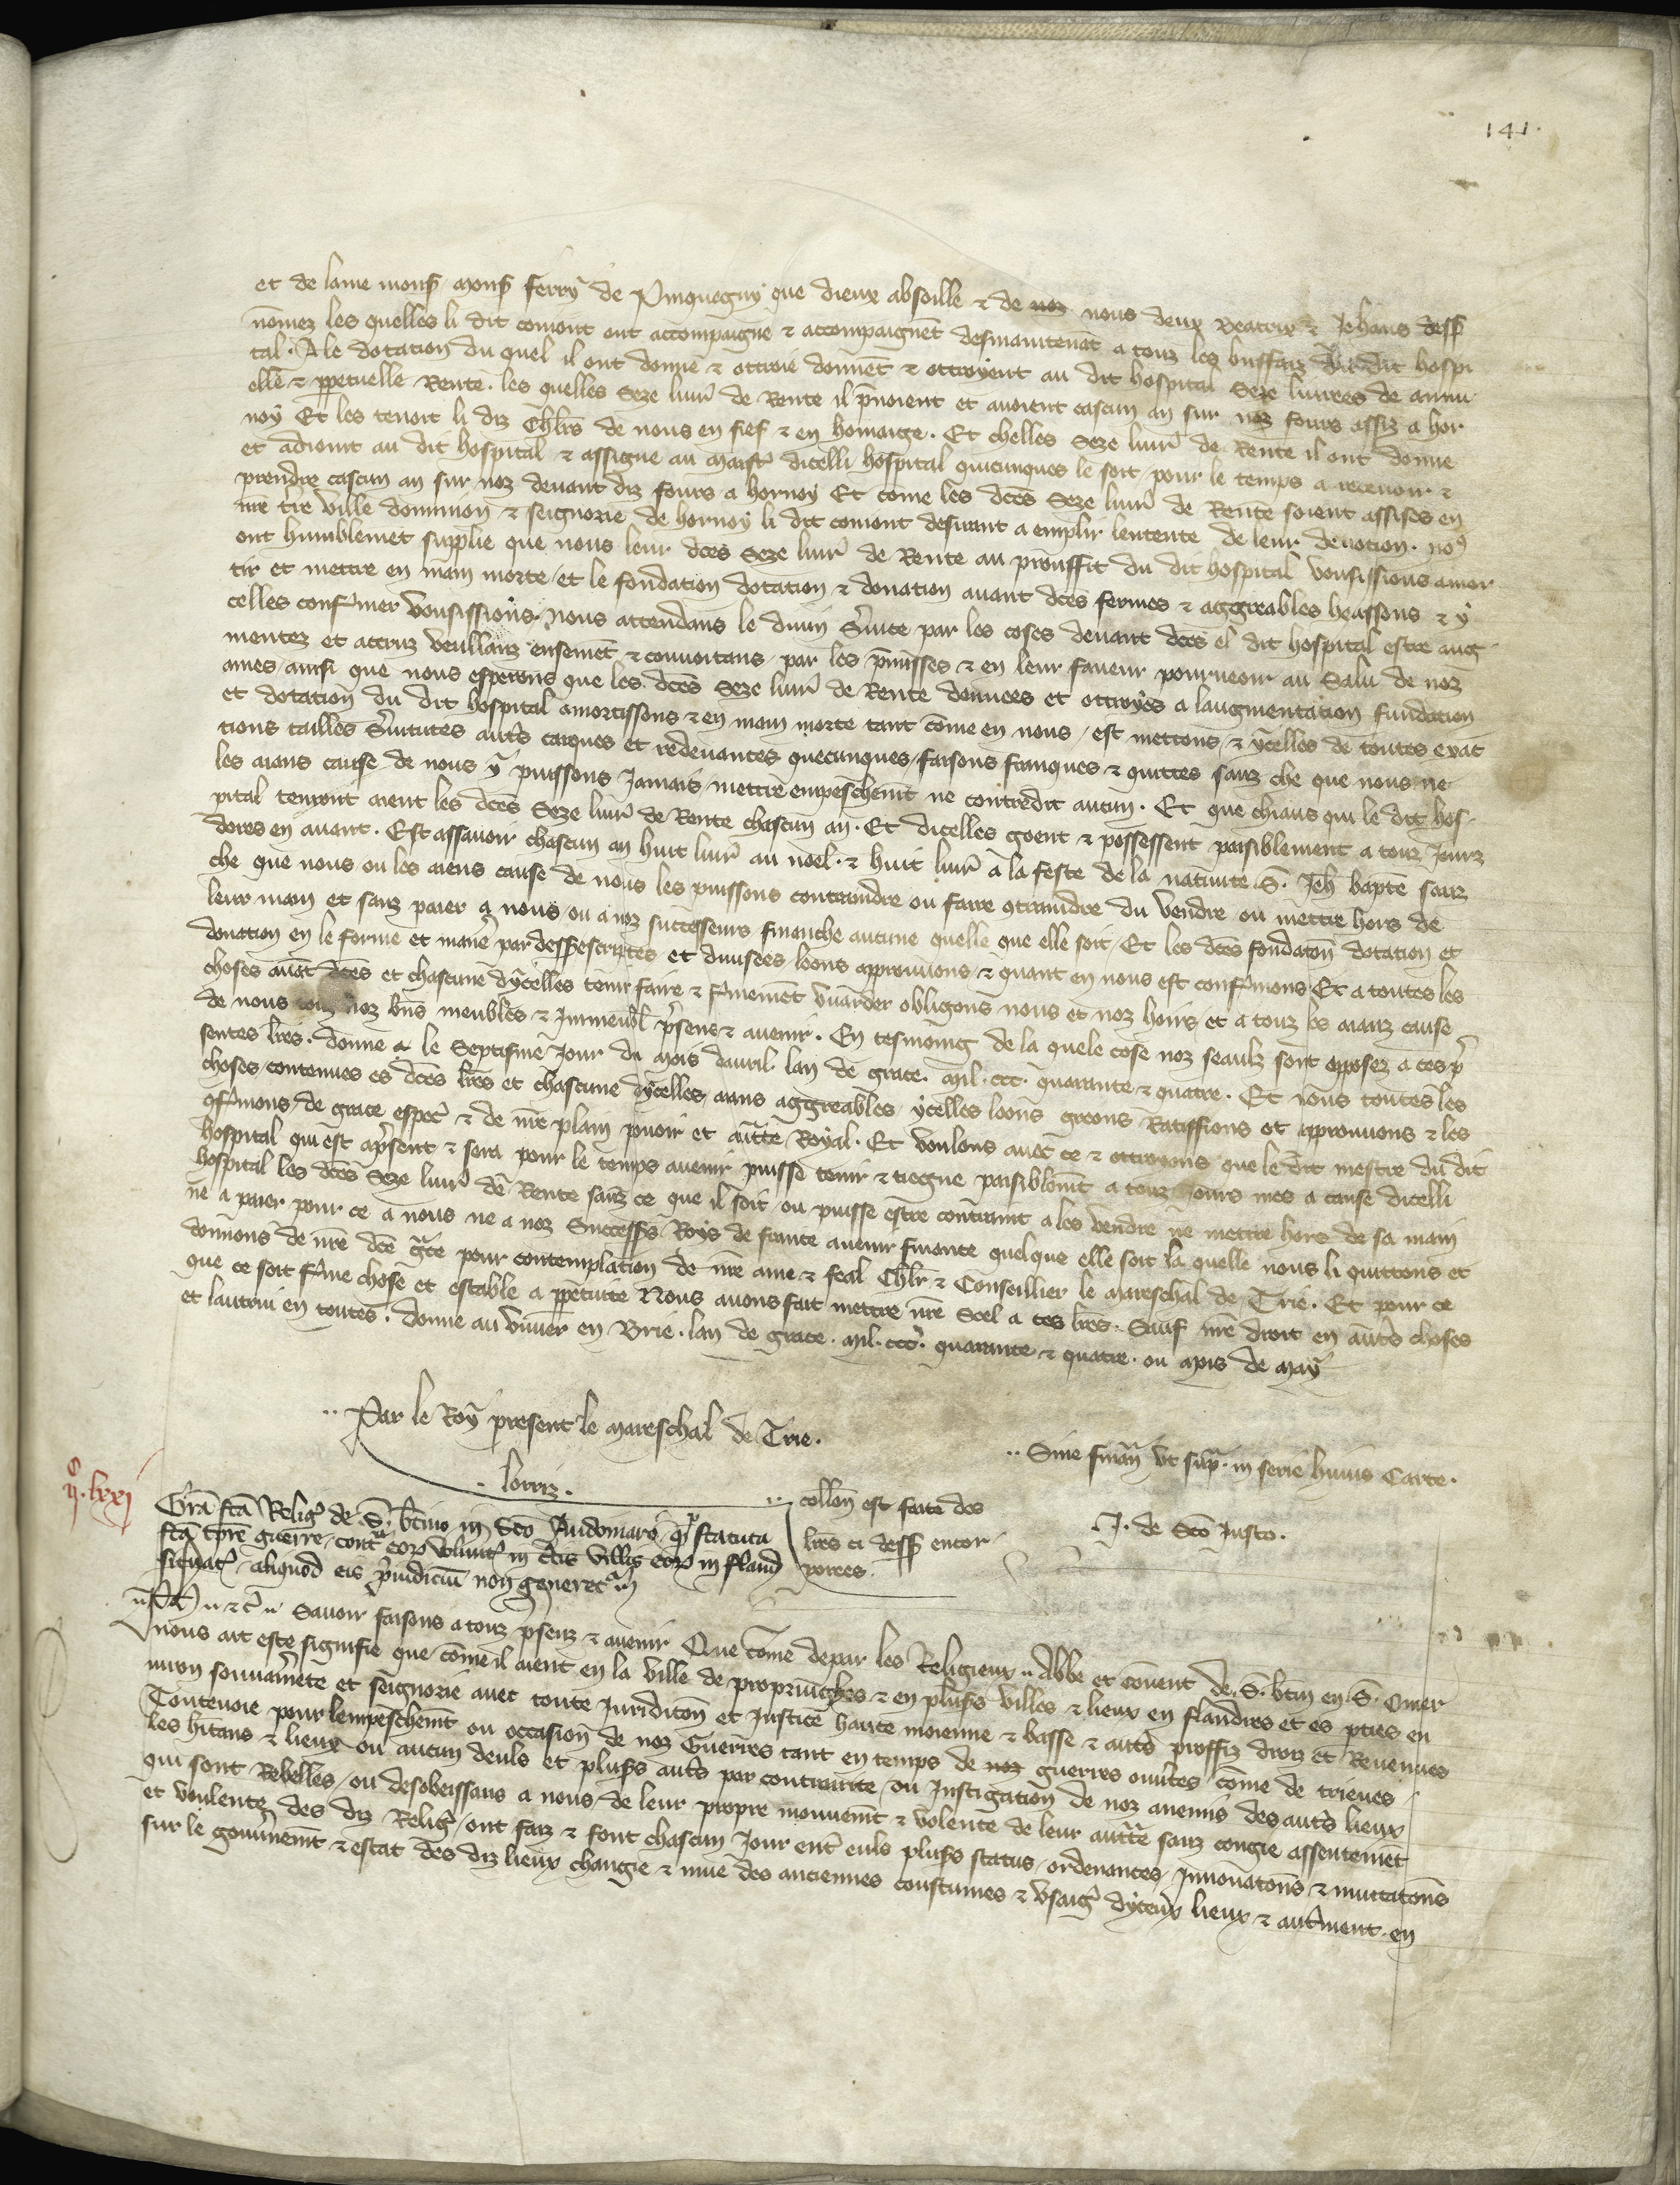 141.
et de lame monsʳ monsʳ ferry de Pinquegny que dieux absoille & de noz nous deux Beatrix & Jehans dessꝰ
nōmez les quelles li dit comont ont accompaignē & accompaignēt desmaintenāt a touz les biffaiz du dit hospi
tal. A le dotation du quel il ont donne & ottroie donnēt & ottroyent au dit hospital Seze livrees de annu
elle & ꝑpetuelle Rente. les quelles Seze livrˢ de Rente il pͬnoient et avoient cascun an sur noz fours assiz a hor
noy Et les tenoit li diz Chlrs de nous en fief & en homaige. Et chelles Seze livrˢ de Rente il ont donne
et adioint au dit hospital & assigne au maistʳ dicelli hospital quicunques le soit pour le temps a recevoir &
prendre cascun an sur noz devant diz fours a hornoy Et cōme les dc̄es Seze livrˢ de Rente soient assises en
nrē tͬre ville dominion & seignorie de hornoy li dit comont desirant a emplir lentente de leur devotion. noꝰ
ont humblemēt supplie que nous leur dc̄es Seze livrˢ de Rente au prouffit du dit hospital vousissions amor
tir et mettre en main morte et le fondation dotation & donation avant dc̄es fermes & aggreables heassons & y
celles confͬmer vousissions. Nous attendans le divin Sͬvice par les coses devant dc̄es el dit hospital estre aug
mentez et accruz veullanz ensemēt & convoitans par les pͬmisses & en leur faveur pourveoir au Salu de noz
ames ainsi que nous esperons que les dc̄es Seze livrˢ de Rente donnees et ottroyes a laugmentation fundation
et dotation du dit hospital amortissons & en main morte tant cōme en nous est mettons & ycelles de toutes exac
tions tailles Sͬvitutes autͬs carques et redevances quecunques faisons franques & quittes sanz che que nous ne
les aians cause de nous y puissons Jamais mettre empeschemt ne contredit aucun. Et que chiaus qui le dit hos
pital tenront aient les dc̄es Seze livrˢ de Rente chascun an. Et dicelles goent & possessent paisiblement a touz Jours
dores en avant. Est assavoir chascun an huit livrˢ au noel. & huit livrˢ a la feste de la nativite S. Jeh̄ bapte sanz
che que nous ou les aiens cause de nous les puissons contraindre ou faire ꝯtraindre du vendre ou mettre hors de
leur main et sanz paier a nous ou a noz successeurs finanche aucune quelle que elle soit Et les dc̄es fondatōn dotation et
donation en le forme et manͬe par dessꝰ escriptes et divisees loons approuvons & quant en nous est confͬmons Et a toutes les
choses avāt dc̄es et chascune dycelles tenir faire & fͬmemēt vuarder obligons nous et noz hoirs et a touz les aianz cause
de nous touz noz bn̄s meubles & Immeubl̄ pͬsens & avenir. En tesmoing de la quele cose noz seaulz sont opposez a ces pͬ
sentes lr̄es. donne a le Septisme Jour du mois davril. lan de grace. mil. ccc. quarante & quatre. Et nous toutes les
choses contenues es dc̄es lr̄es et chascune dycelles aians aggreables ycelles loons greons Ratiffions et approuvons & les
ꝯfͬmons de grace especͬ & de nrē plain povoir et autͭte Royal. Et voulons avec ce & ottroyons que le dit mestre du dit
hospital qui est apͬsent & sera pour le temps avenir puisse tenir & tiegne paisiblemt a touz Jours mes a cause dicelli
hospital les dc̄es Seze livrˢ de Rente sanz ce que il soit ou puisse estre contraint a les vendre ne mettre hors de sa main
ne a paier pour ce a nous ne a noz Successͬs Roys de france avenir finance quelque elle soit la quelle nous li quittons et
donnons de nrē dc̄e gͬce pour contemplation de nrē ame & feal Chlr̄ & Conseillier le mareschal de Trie. Et pour ce
que ce soit fͬme chose et estable a ꝑpetuite Nous avons fait mettre nrē Scel a ces lr̄es. Sauf nrē droit en autͬs choses
et lautrui en toutes. donne au vivier en Brie. lan de grace. mil. cccͦ. quarante & quatre. ou mois de may
Par le Roy present le mareschal de Trie.
lorriz.
Sine finanͨ ut supͣ. in serie huius Carte.
collōn est faite des
lr̄es ci dessꝰ encor
porees.
J. de Sc̄o Justo.
ijͨ. lxxj
Grā fc̄a Religͦ de S. btino in Sc̄o Audomaro qͩ statuta
fc̄a tpre guerre contͣ eorͫ voluntͭ in dc̄is villis eorͫ in fland
signatͭ aliquod eis pͬiudiciū non generetͬ
Ph̄ & c. Savoir faisons a touz pͬsenz & avenir Que come depar les Religieux Abbe et cōvent de S. btin en S. Omer
nous ait este signifie que cōme il aient en la ville de propringhes & en plusꝰs villes & lieux en flandres et es pͬties en
viron souvͬainete et seignorie avec toute Juriditōn et Justice haute moienne & basse & autͬs proffiz droiz et Revenues
Toutevoie pour lempeschemt ou occasion de noz Guerres tant en temps de noz guerres ouvͬtes cōme de trieves
les hitans & lieux ou aucun deuls et plusꝰs autͬs par contrainte ou Instigation de noz anemis des autͬs lieux
qui sont Rebelles ou desobeissans a nous de leur propre mouvemt & volente de leur autͭte sanz congie assentemēt
et voulente des diz Religͬ ont faiz & font chascun Jour entͬ euls plusꝰs status ordenances Innovatōns & mutatōns
sur le gouvͬnemt & estat des diz lieux change & mue des anciennes coustumes & usaigͬ dyceux lieux & autͬment en